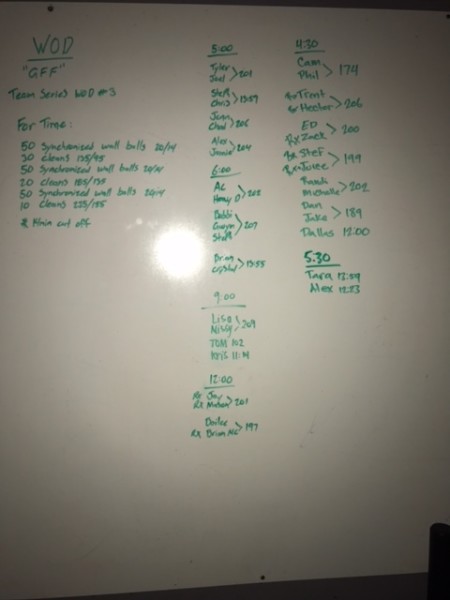 WOD
"GFF"
Team Series WOD #3
For Time:
50 Synchronized wall balls 20/14
30 cleans 135/95
50 Synchronized wall balls 20/14
20 cleans 185/135
50 Synchronized wall balls 20/14
10 cleans 225/155
cut off
5:00
Tyler
Joel > 201
Steph
Chris > 13:59
Chad > 206
Alex
Jamie > 204
6:00
AC
Henry D > 202
Bobbi
Gwyn
Steph > 207
Brian
Crystal > 13:55
9:00
Lisa
Missy > 209
TOM 102
Kris 11:14
12:00
Rx Jay
Rx > 201
Rx Brian Mc > 197
4:30
Cam
Phil > 174
Trent
Hector > 206
ED
Rx Zack > 200
Rx Stef
> 199
Michelle > 202
Dan
Jake > 189
Dallas 12:00
5:30
Tara 13:59
Alex 12:23